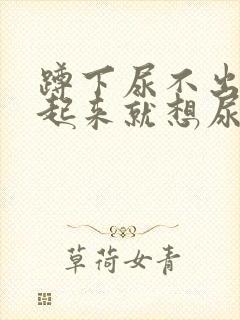 蹲下尿不出
起来就想尿
草荷女青